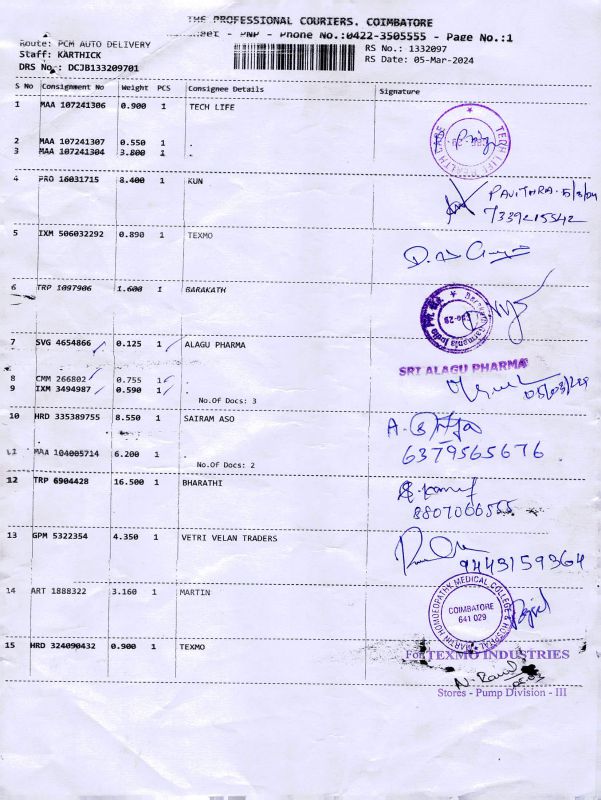 THE PROFESSIONAL COURIERS. COIMBATORE
- PNP - Phone No.:0422-3505555 - Page No.:1
Route: PCM AUTO DELIVERY
RS No.: 1332097
Staff: KARTHICK
RS Date: 05-Mar-2024
DRS No.: DCJB133209701
S No Consignment No Weight PCS Consignee Details Signature
1 MAA 107241306 0.900 1 TECH LIFE
2 MAA 107241307 0.550 1 .
3 MAA 107241304 3.800 1 .
TECH LIFE HEALTH CARE
4 PRO 16031715 8.400 1 KUN
PAVITHRA. 5/3/24
7339215542
5 IXM 506032292 0.890 1 TEXMO
6 TRP 1097906 1.600 1 BARAKATH
7 SVG 4654866 0.125 1 ALAGU PHARMA
SRI ALAGU PHARMA
8 CMM 266802 0.755 1 .
9 IXM 3494987 0.590 1 .
05/03/24
No.Of Docs: 3
10 HRD 335389755 8.550 1 SAIRAM ASO
11 MAA 104005714 6.200 1 .
6379565676.
No.Of Docs: 2
12 TRP 6904428 16.500 1 BHARATHI
8807066555
13 GPM 5322354 4.350 1 VETRI VELAN TRADERS
9443159364
14 ART 1888322 3.160 1 MARTIN
MARTIN HOMOEOPATHY MEDICAL COLLEGE & HOSPITAL
COIMBATORE
641 029
15 HRD 324090432 0.900 1 TEXMO
For TEXMO INDUSTRIES
Stores - Pump Division - III